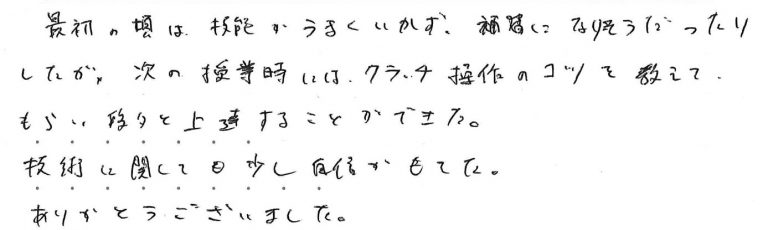 最初の頃は、技能がうまくいかず、補習になりそうだったり
したが、次の授業時には、クラッチ操作のコツを教えて
もらい段々と上達することができた。
技術に関しても少し自信がもてた。
ありがとうございました。